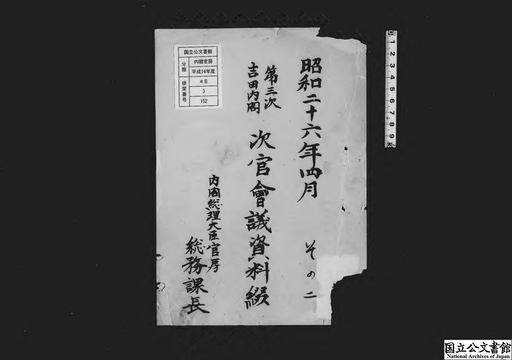 昭和二十六年四月
その二
第三次
吉田内閣
次官會議資料綴
内閣総理大臣官房
総務課長
国立公文書館
分類
内閣官房
平成14年度
4 E
3
152
排架番号
1 2 3 4 5 6 7 8 9
国立公文書館
National Archives of Japan